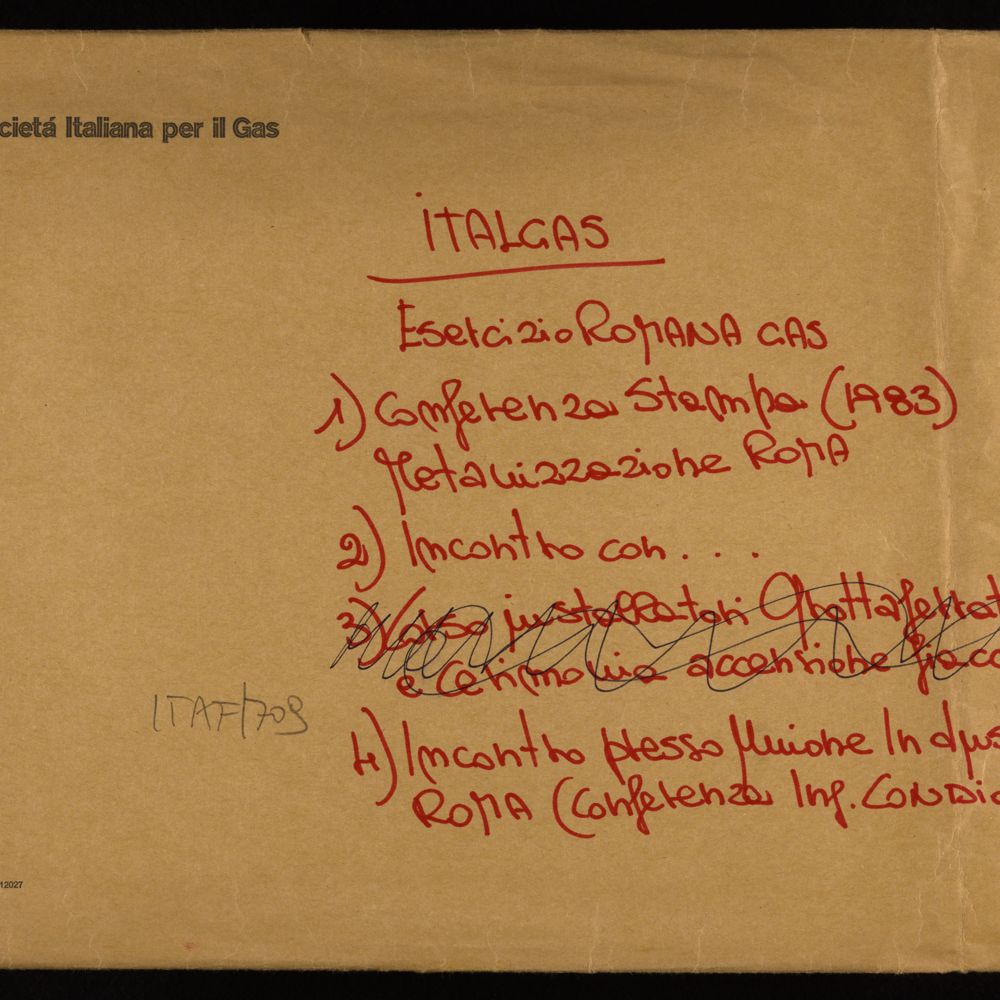 cietá Italiana per il Gas
ITALGAS
Esercizio ROMANA GAS
1) Conferenza Stampa (1983)
Metanizzazione ROMA
2) Incontro con . . .
3) Corso installatori Grottaferrat
e Cerimonia accensione fiacc
ITAF/709
4) Incontro presso Unione Indus
ROMA (Conferenza Ing. CONDI
12027